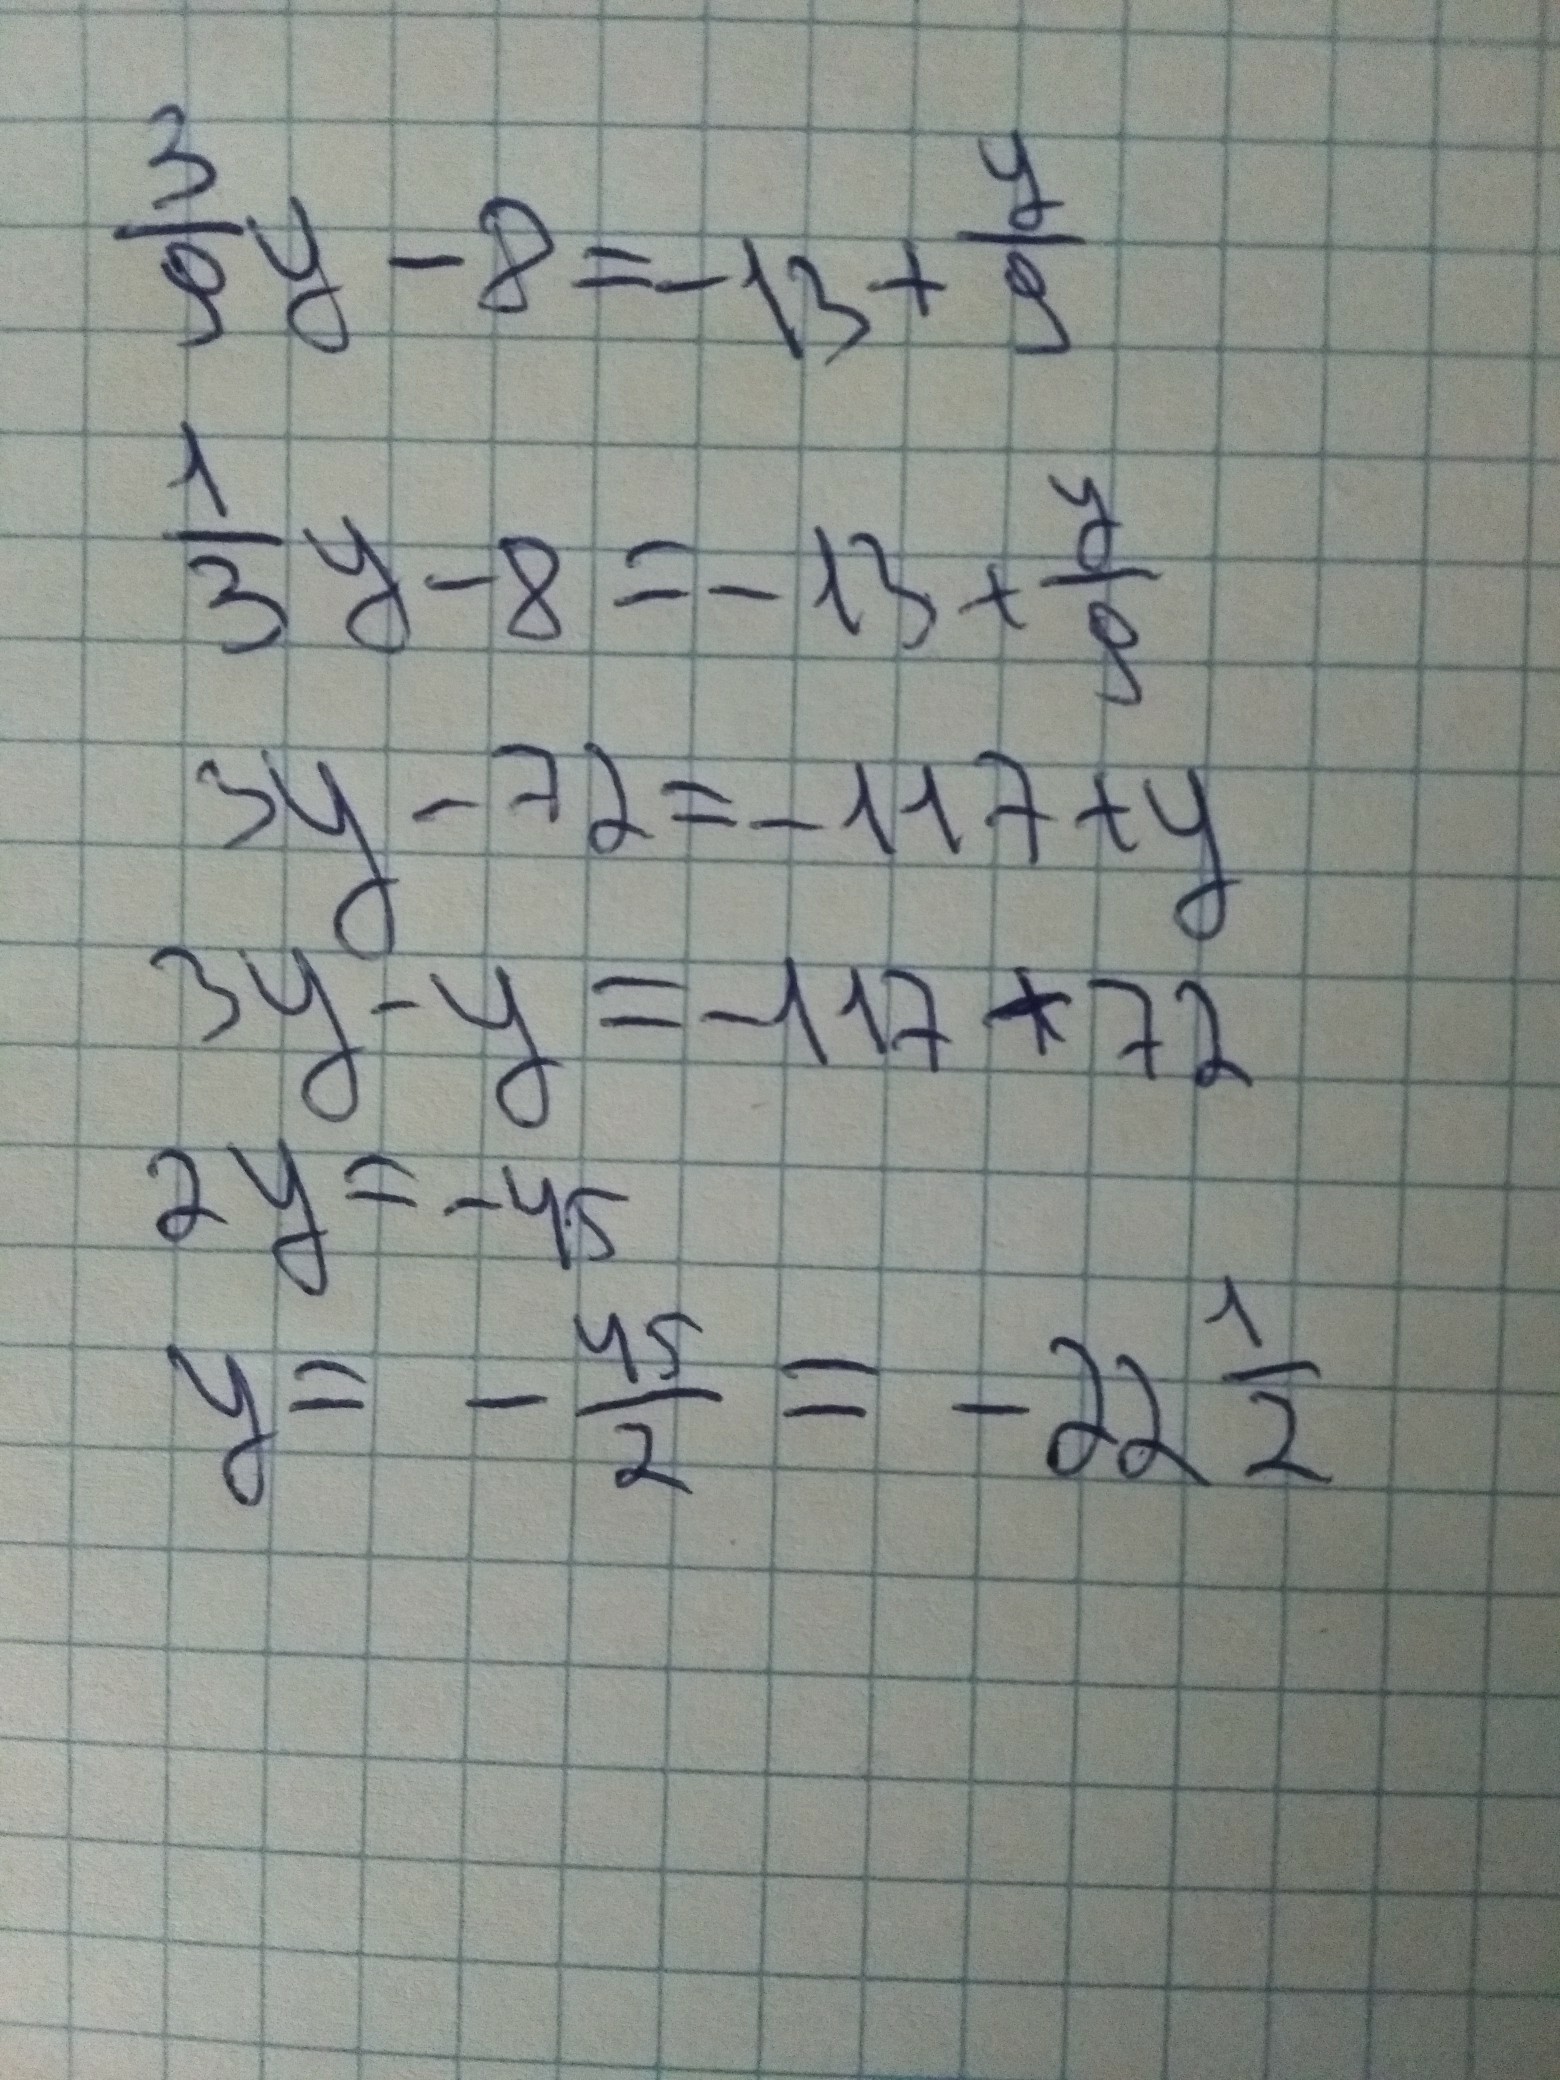 3/9 y - 8 = -13 + y/9
1/3 y - 8 = -13 + y/9
3y - 72 = -117 + y
3y - y = -117 + 72
2y = -45
y = -45/2 = -22 1/2